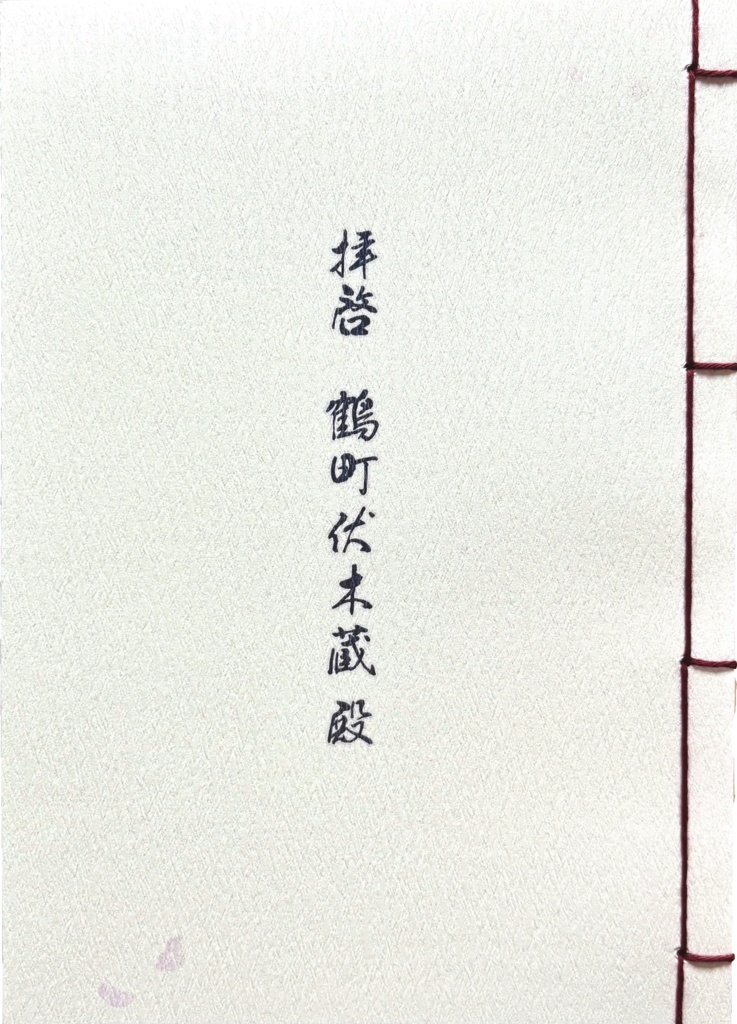 拝啓　鶴町伏木蔵殿